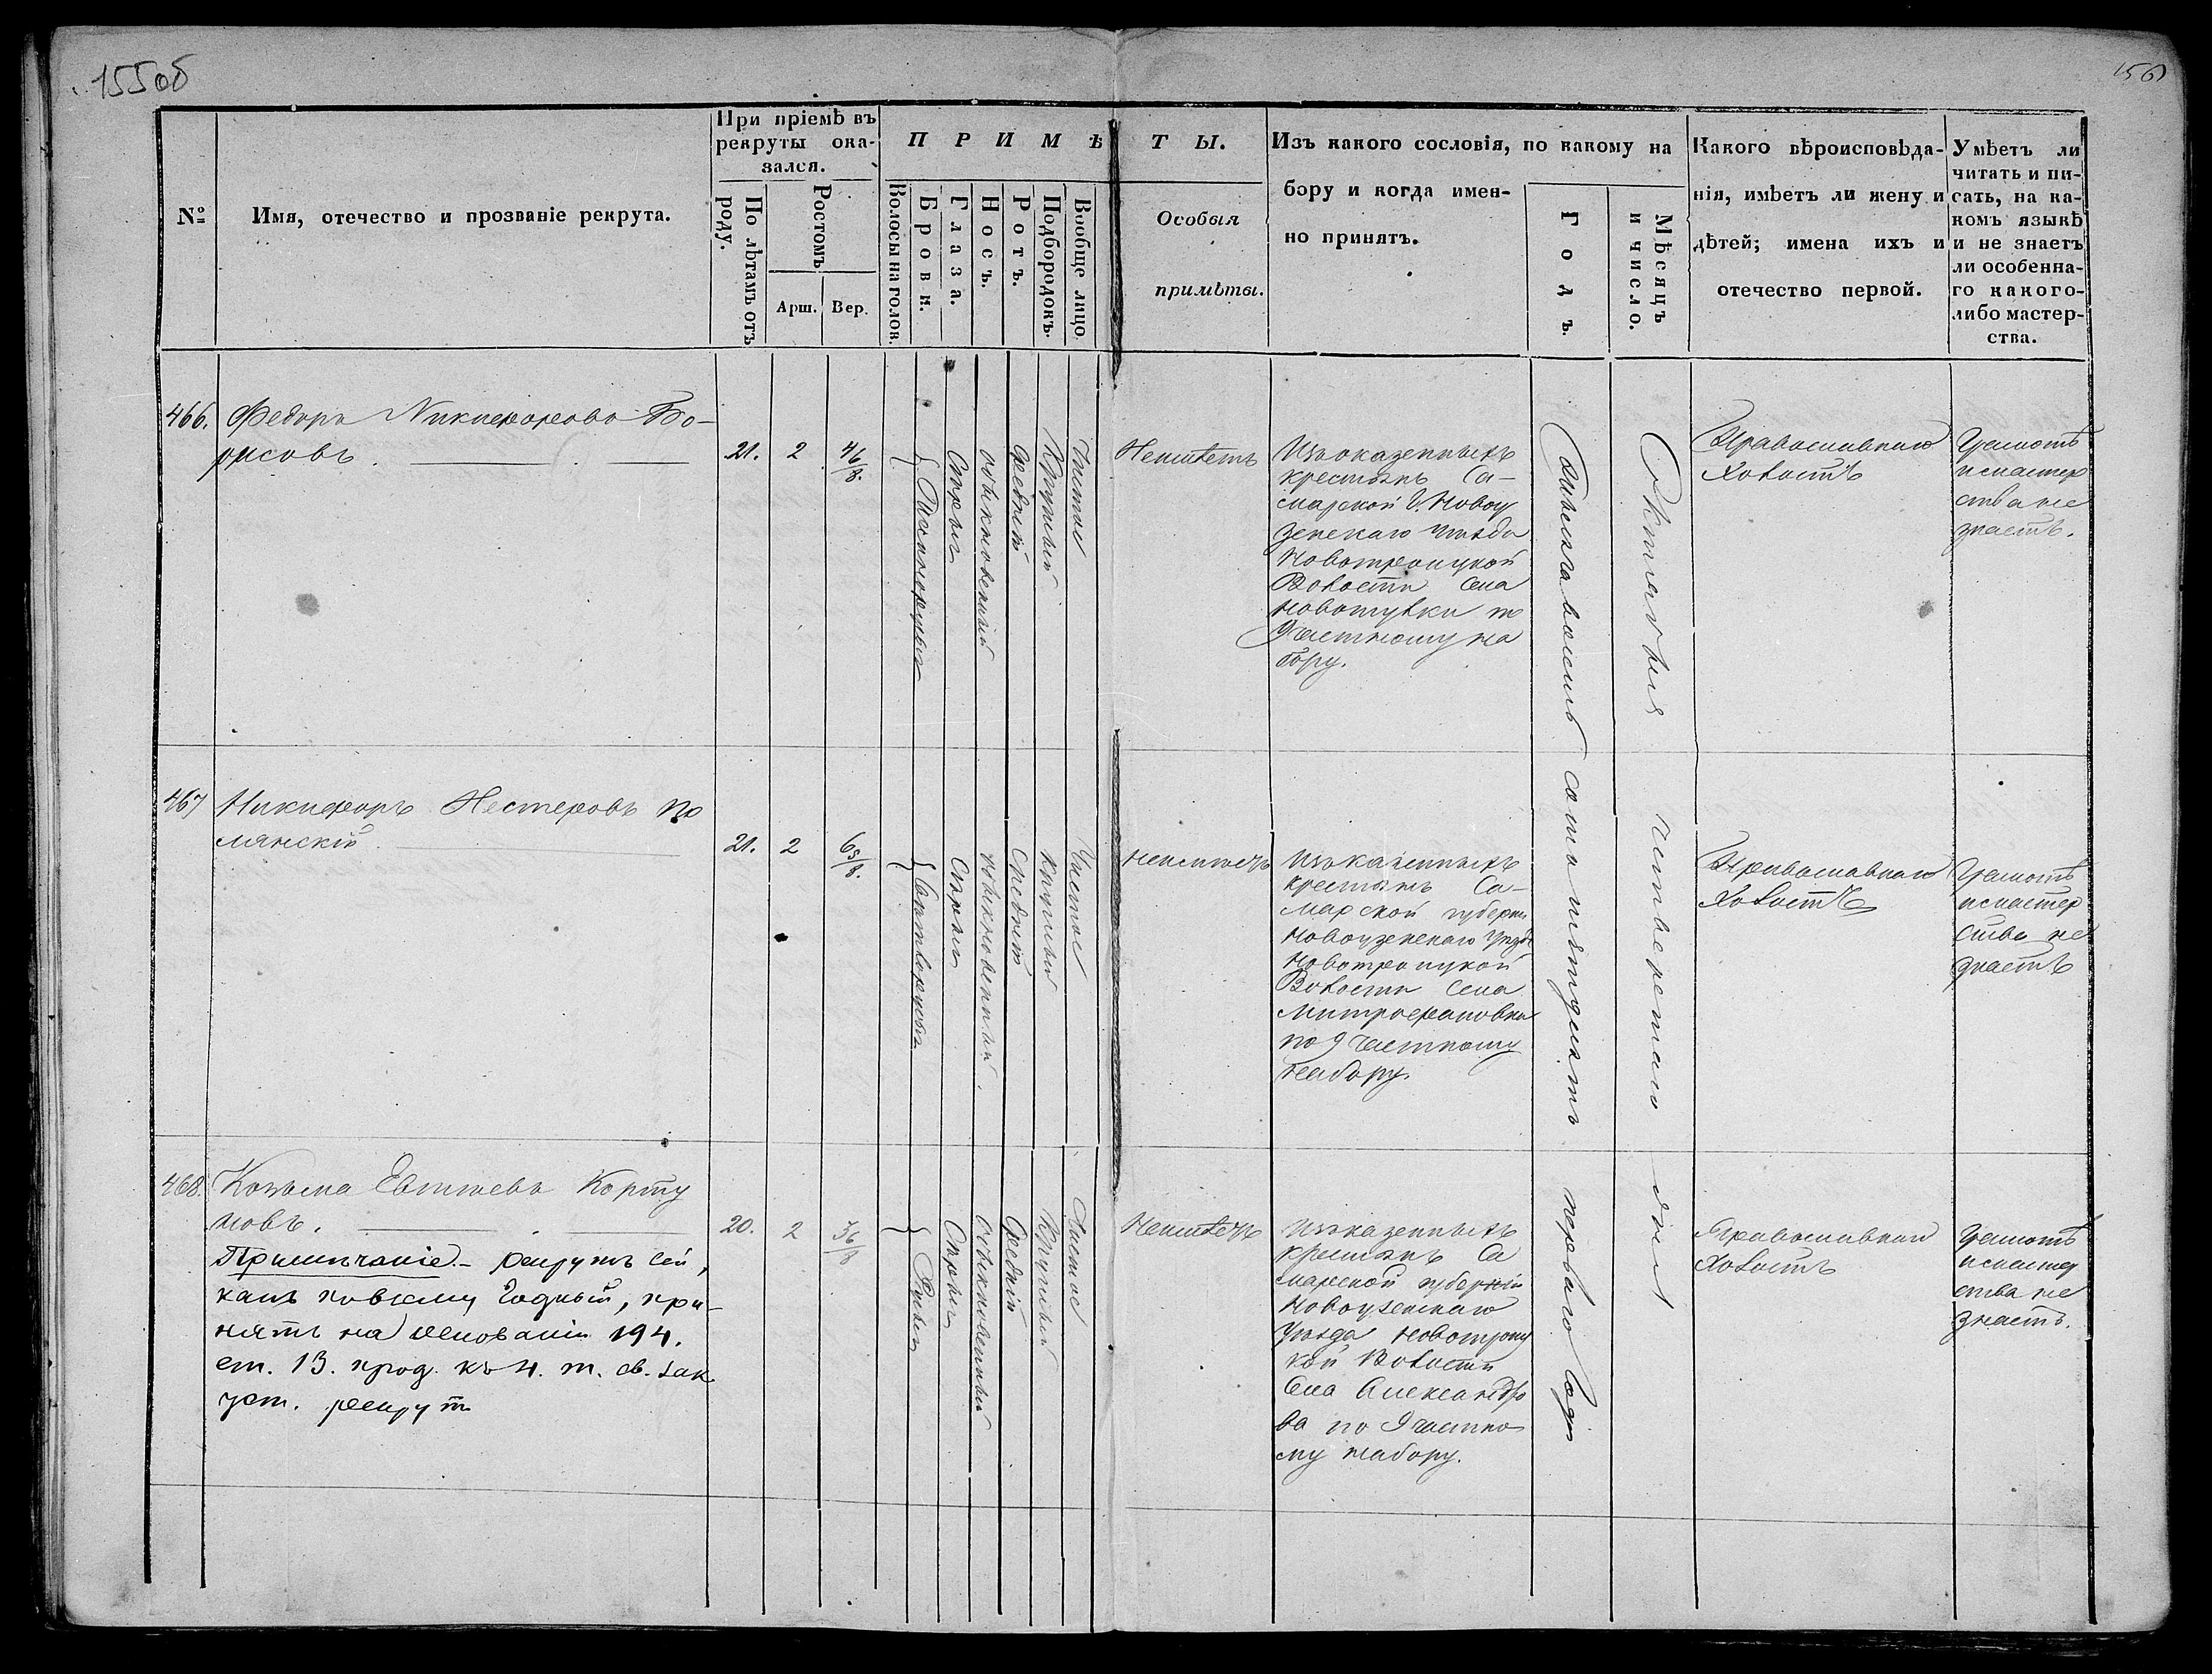 155об
156
№
Имя, отечество и прозваніе рекрута.
При пріемѣ въ
рекруты ока-
зался.
По лѣтамъ отъ
роду.
Ростомъ
Арш.
Вер.
ПРИМѢ
ТЫ.
Волосы на голов.
Брови.
Глаза.
Носъ.
Ротъ.
Подбородокъ.
Вообще лицо.
Особыя
примѣты.
Изъ какого сословія, по какому на
бору и когда имен-
но принятъ.
Годъ.
Мѣсяцъ
и число.
Какого вѣроисповѣда-
нія, имѣетъ ли жену и
дѣтей; имена ихъ и
отечество первой.
Умѣетъ ли
читать и пи-
сать, на ка-
комъ языкѣ
и не знаетъ
ли особенна-
го какого-
либо мастер-
ства.
466.
Федоръ Никифоровъ Бо-
рисовъ.
21.
2
4 6/8.
Сѣрыя
обыкновенный
средній
Круглый
Чистое
Неимѣетъ
Изъ казенныхъ
крестьянъ Са-
марской Г. Новоу
зенскаго Уѣзда
Новотроицкой
Волости Села
Новотулки по
9 частному на
бору.
Тысяча восемь сотъ пятьдесятъ перваго года
Октября четвертаго дня
Православнаго
Холостъ
Грамотѣ
и мастер
ства не
знаетъ.
467
Никифоръ Нестеровъ По
лянскій
21.
2
6 5/8.
Сѣрыя
обыкновенный.
Средній
круглый
Чистое
неимѣетъ
Изъ казенныхъ
крестьянъ Са-
марской губерни
Новоузенскаго Уѣзда
Новотроицкой
Волости Села
Митрофановки
по 9 частному
набору.
Православнаго
Холостъ
Грамотѣ
и мастер
ства не
знаетъ
468.
Козьма Евтѣевъ Корту
новъ.
Примѣчаніе. - рекрутъ сей,
какъ по всему годный, при-
нятъ на основаніи 194.
ст. 13. прод. къ 4. т. св. зак
уст. рекрут
20.
2
3 6/8
Русыя
Сѣрыя
Обыкновенный
Средній
Круглый
Чистое
Неимѣетъ
Изъ казенныхъ
крестьянъ Са
марской губерніи
Новоузенскаго
Уѣзда Новотроиц
кой Волости
Села Александро
ва по 9 частно
му набору.
Православнаго
Холостъ
Грамотѣ
и мастер
ства не
знаетъ.